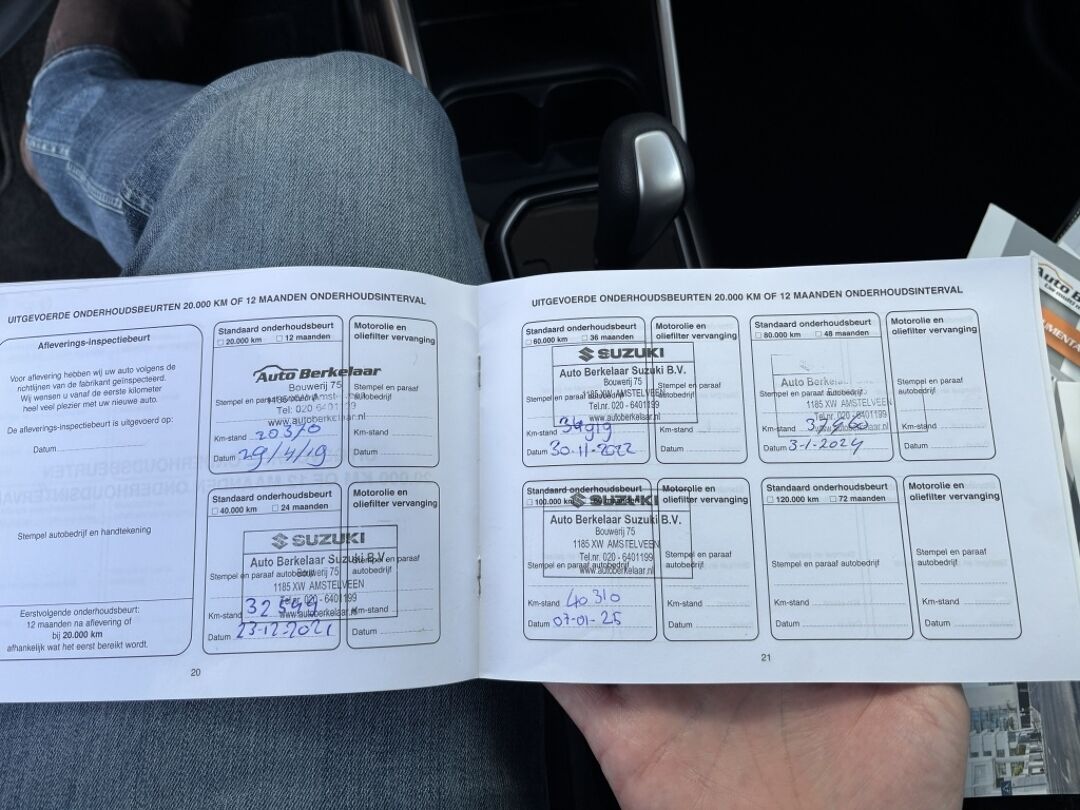 UITGEVOERDE ONDERHOUDSBEURTEN 20.000 KM OF 12 MAANDEN ONDERHOUDSINTERVAL
Afleverings-inspectiebeurt
Voor aflevering hebben wij uw auto volgens de
richtlijnen van de fabrikant geïnspecteerd.
Wij wensen u vanaf de eerste kilometer
heel veel plezier met uw nieuwe auto.
De afleverings-inspectiebeurt is uitgevoerd op:
Datum
Stempel autobedrijf en handtekening
Eerstvolgende onderhoudsbeurt:
12 maanden na aflevering of
bij 20.000 km
afhankelijk wat het eerst bereikt wordt.
Standaard onderhoudsbeurt
20.000 km 12 maanden
Auto Berkelaar
Bouwerij 75
Stempel en paraaf autobedrijf
Tel: 020 6401
www.autoberkelaar.nl
Km-stand 20310
Datum 29/4/19
Motorolie en
oliefilter vervanging
Stempel en paraaf
autobedrijf
Km-stand
Datum
Standaard onderhoudsbeurt
40.000 km 24 maanden
SUZUKI
Auto Berkelaar Suzuki B.V.
Bouwerij 75
Stempel en paraaf autobedrijf
1185 XW AMSTELVEEN
Tel.nr. 020 - 6401199
www.autoberkelaar.nl
Km-stand 32599
Datum 23-12-2021
Motorolie en
oliefilter vervanging
Stempel en paraaf
autobedrijf
Km-stand
Datum
20
UITGEVOERDE ONDERHOUDSBEURTEN 20.000 KM OF 12 MAANDEN ONDERHOUDSINTERVAL
Standaard onderhoudsbeurt
60.000 km 36 maanden
SUZUKI
Auto Berkelaar Suzuki B.V.
Bouwerij 75
1185 XW AMSTELVEEN
Stempel en paraaf autobedrijf
Tel.nr. 020 - 6401199
www.autoberkelaar.nl
Km-stand
Datum 30-11-2022
Motorolie en
oliefilter vervanging
Stempel en paraaf
autobedrijf
Km-stand
Datum
Standaard onderhoudsbeurt
80.000 km 48 maanden
Auto
Bouwerij 75
Stempel en paraaf autobedrijf
1185 XW AMSTELVEEN
Tel.nr. 020 - 6401199
www.autoberkelaar.nl
Km-stand
Datum 3-1-2024
Motorolie en
oliefilter vervanging
Stempel en paraaf
autobedrijf
Km-stand
Datum
Standaard onderhoudsbeurt
100.000 km maanden
SUZUKI
Auto Berkelaar Suzuki B.V.
Bouwerij 75
1185 XW AMSTELVEEN
Tel.nr. 020 - 6401199
Stempel en paraaf autobedrijf
www.autoberkelaar.nl
Km-stand 40310
Datum 07-01-25
Motorolie en
oliefilter vervanging
Stempel en paraaf
autobedrijf
Km-stand
Datum
Standaard onderhoudsbeurt
120.000 km 72 maanden
Stempel en paraaf autobedrijf
Km-stand
Datum
Motorolie en
oliefilter vervanging
Stempel en paraaf
autobedrijf
Km-stand
Datum
21
Auto